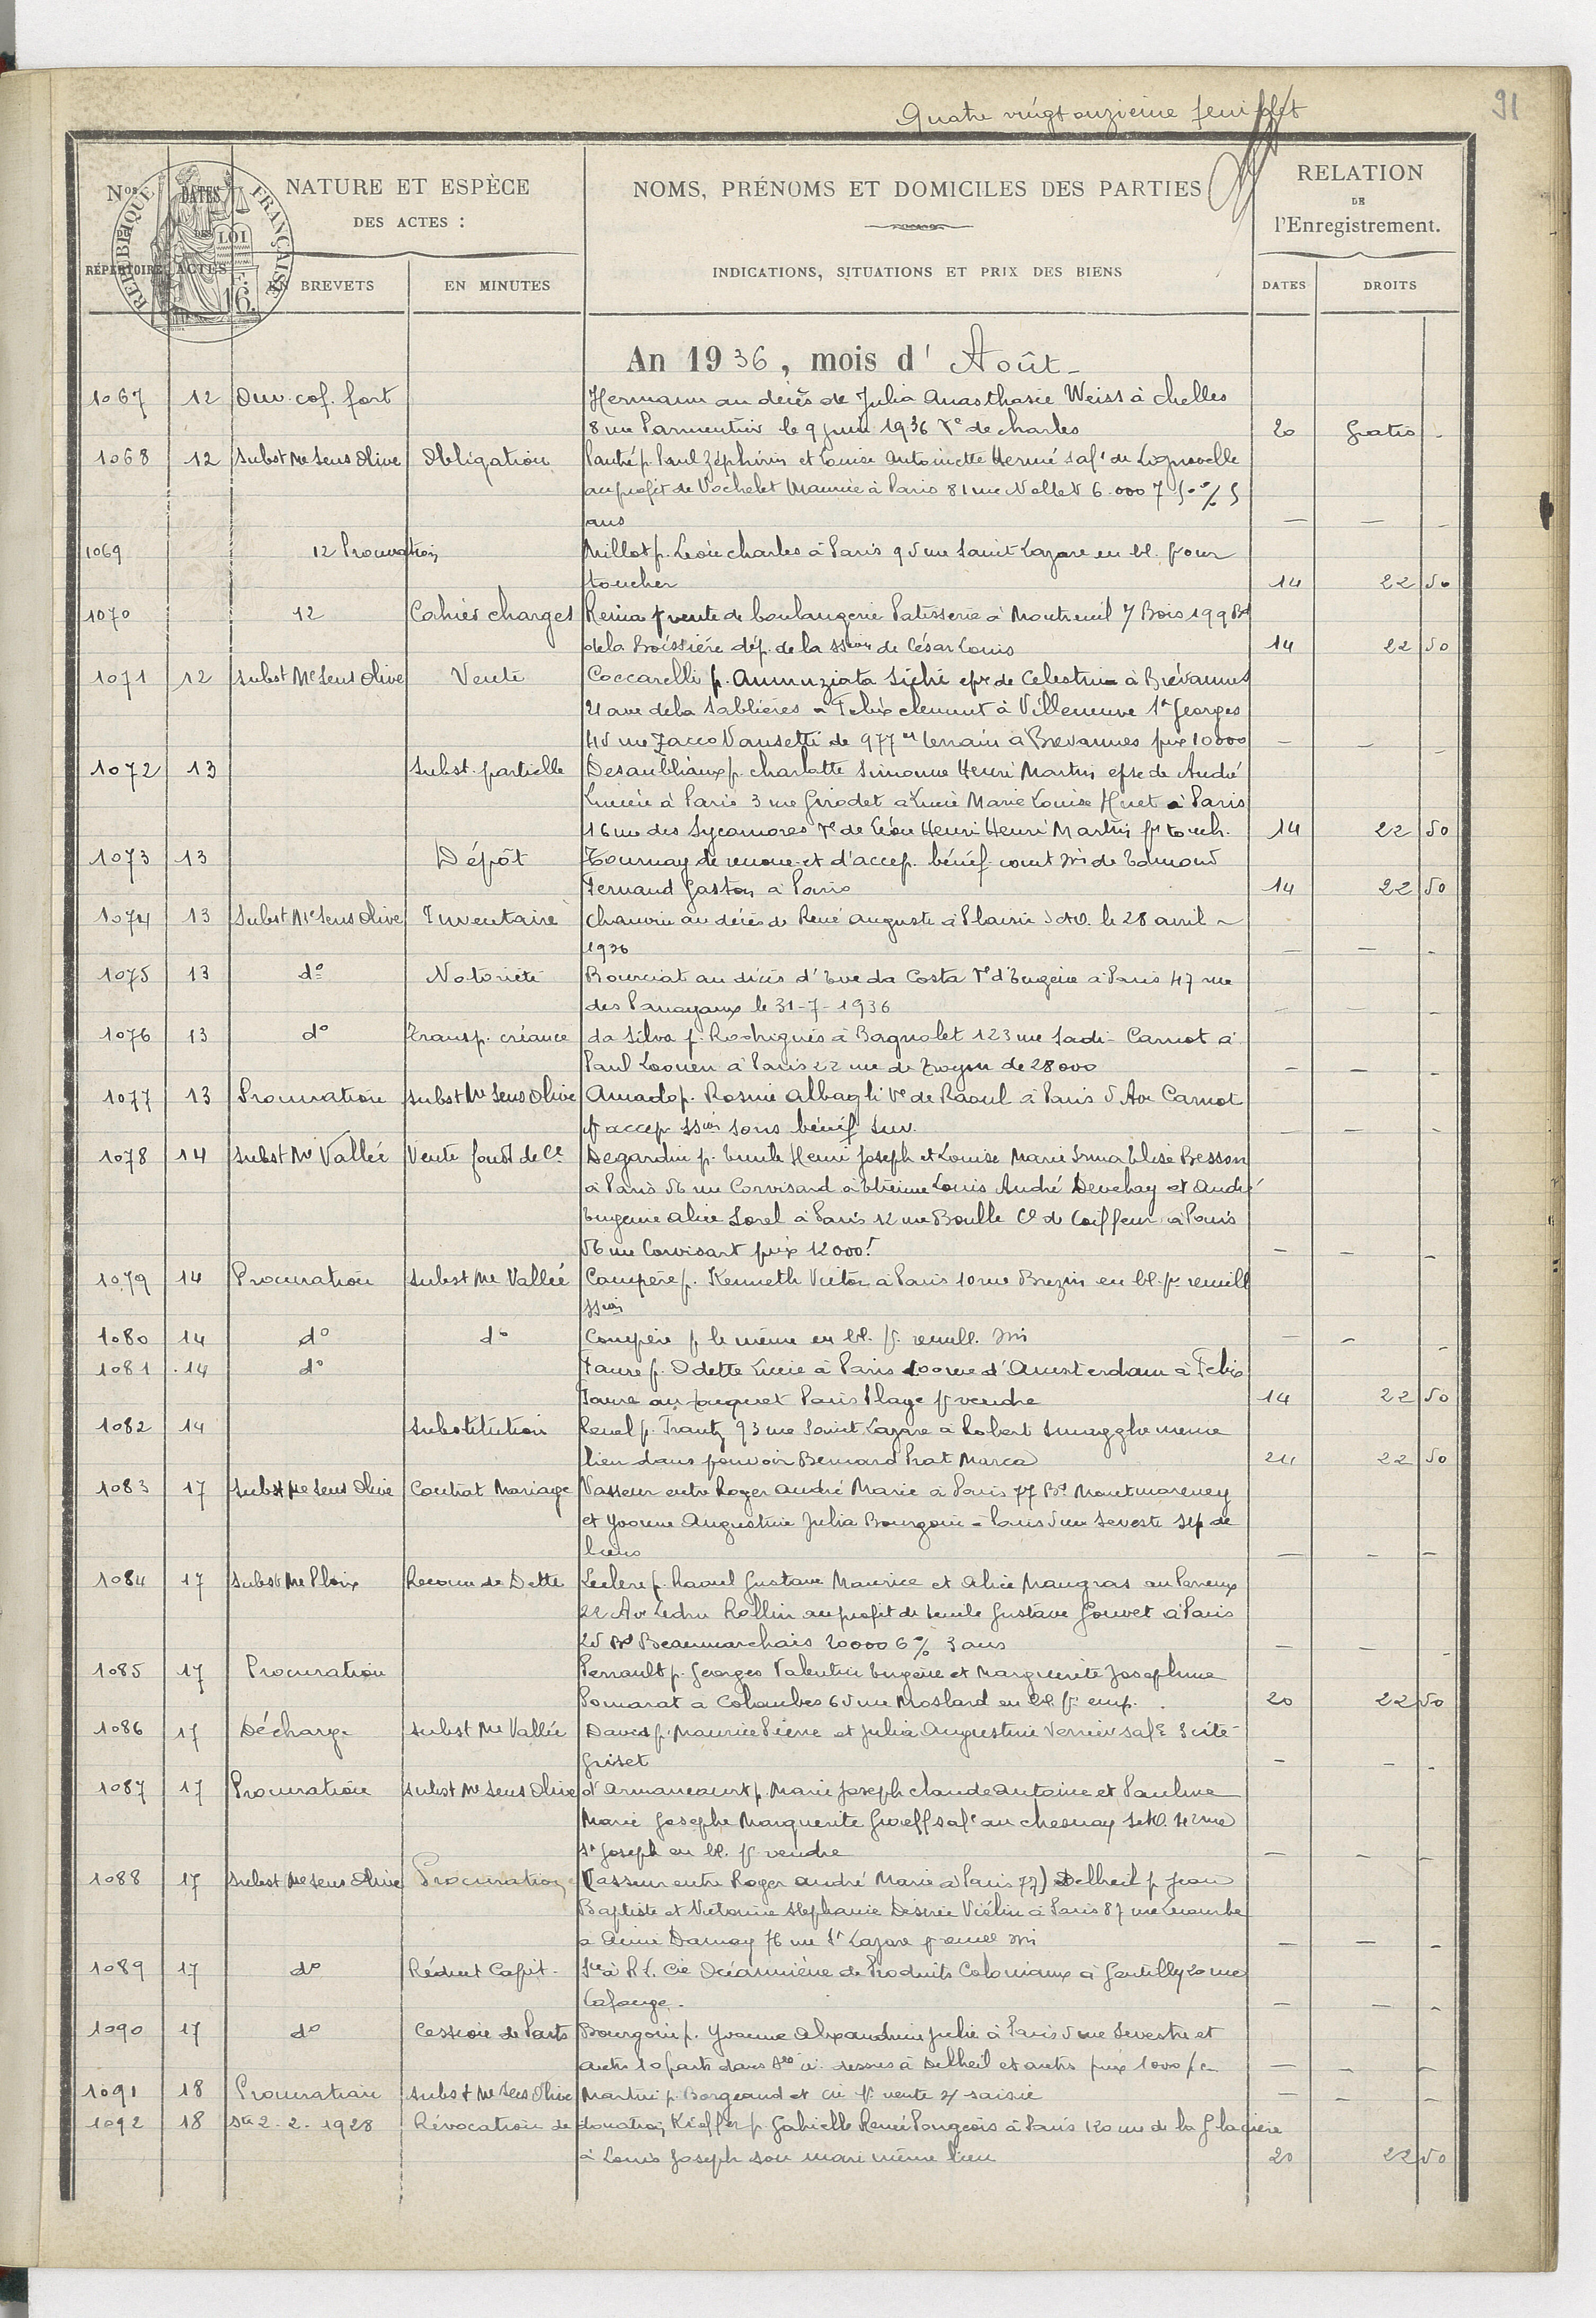 Quatre vingt onzième feuillet
91
Nos DU RÉPERTOIRE
DATES DES ACTES
NATURE ET ESPÈCE
DES ACTES :
EN BREVETS
EN MINUTES
NOMS, PRÉNOMS ET DOMICILES DES PARTIES
INDICATIONS, SITUATIONS ET PRIX DES BIENS
RELATION
DE
l'Enregistrement.
DATES
DROITS
REPUBLIQUE FRANÇAISE
LOI
16
An 1936, mois d' Août
1067 12 Ouv. cof. fort Hermann au décès de Julia Anasthasie Weiss à Chelles
8 rue Parmentier le 9 juin 1936 Ve de Charles 20 Gratis -
1068 12 Subst Me Sens Olive Obligation Pautré p. Paul Zéphirin et Louise Antoinette Hermé
au profit de Vochelet Maurice à Paris 81 rue Nollet 6.000
ans — — -
1069 12 Procuration Millot p. Léon Charles à Paris 95 rue Saint Lazare en bl. pour
toucher 14 22 50
1070 12 Cahier charges vente de boulangerie Patisserie à Montreuil s/ Bois 199 Bd
de la Boissière dép. de la ssion de César Louis 14 22 50
1071 12 Subst Me Sens Olive Vente Coccarelli p. Annunziata epse de Celestin à Brévannes
21 ave de la Sablières à Felix Clement à Villeneuve St Georges
45 rue Sacco Vansetti de 977 m terrain à Brevannes prix 10000 — — -
1072 13 Subst. partielle p. Charlotte Simonne Henri Martin epse de André
à Paris 3 rue Girodet à Lucie Marie Louise Huet à Paris
16 rue des Sycomores Ve de Léon Henri Henri Martin pr touch. 14 22 50
1073 13 Dépôt Tournay de renonc. et d'accep. bénéf. de Edmond
Fernand Gaston à Paris 14 22 50
1074 13 Subst Me Sens Olive Inventaire Chauvin au décès de René Auguste à Plaisir S et O. le 28 avril
1936 — — -
1075 13 do Notoriété Bourciat au décès d'Eve da Costa Ve d'Eugène à Paris 47 rue
des Panoyaux le 31-7-1936 - - -
1076 13 do Transp. créance da Silva p. Rodrigués à Bagnolet 123 rue Sadi-Carnot à
Paul à Paris 22 rue de Troyon de 28000 - — -
1077 13 Procuration Subst Me Sens Olive Amado p. Rosine Albagli Ve de Raoul à Paris 5 Ave Carnot
pr accep. ssion sous bénéf Inv. — — -
1078 14 Subst Me Vallée Vente fond de Ce Degardin p. Emile Henri Joseph et Louise Marie Irma Elise Besson
à Paris 56 rue Corvisard à Etienne Louis André Devehay et André
Eugenie Alice Sorel à Paris 12 rue Boulle Ce de Coiffeur à Paris
56 rue Corvisart prix 12000f — — -
1079 14 Procuration Subst Me Vallée Compère p. Kenneth Victor à Paris 10 rue Brezin en bl. pr recueill
ssion
1080 14 do do Compère p le même en bl. pr. recueill. — - -
1081 14 do Faure p. Odette Lucie à Paris 100 rue d'Amsterdam à Felix
Faure au Touquet Paris Plage pr vendre 14 22 50
1082 14 Substitution Renel p. Frantz 93 rue Saint Lazare à Robert Smagghe meme
lieu dans pouvoir Bernard Prat Marca 24 22 50
1083 17 Subst Me Sens Olive Contrat Mariage Vasseur entre Roger André Marie à Paris 77 Bd Montmorency
et Yvonne Augustine Julia Bourgoin à Paris 5 rue Seveste sep de
biens — — -
1084 17 Subst Me Ploix Reconn de Dette Leclere p. Raoul Gustave Maurice et Alice Maugras au Perreux
22 Ave Ledru Rollin au profit de Emile Gustave Gouvet à Paris
25 Bd Beaumarchais 20000 6% 3 ans — — -
1085 17 Procuration Perrault p. Georges Valentin Eugène et Marguerite Josephine
Pomarat à Colombes 65 rue Moslard en bl. pr emp. 20 22 50
1086 17 Décharge Subst Me Vallée David p. Maurice Pierre et Julia Augustine Verrier sa fe 3 cité
Griset - - -
1087 17 Procuration Subst Me Sens Olive d'Armancourt p. Marie Joseph Claude Antoine et Pauline
Marie Josephe Marguerite sa fe au Chesnay S et O. 42 rue
St Joseph en bl. pr vendre — — -
1088 17 Subst Me Sens Olive Procuration (Vasseur entre Roger André Marie à Paris 77) Delheil p Jean
Baptiste et Victorine Stephanie Desirée Viélin à Paris 87 rue Lecourbe
à Aimé Damay 76 rue St Lazare — — -
1089 17 do Réduct Capit. Sté à R L. Cie Océanienne de Produits Coloniaux à Gentilly 20 rue
Lafouge. — — -
1090 17 do Cession de Parts Bourgoin p. Yvonne Alexandrine Julie à Paris 5 rue Sevestre et
autre 10 parts dans Sté ci-dessus à Delheil et autre prix 1000 — — -
1091 18 Procuration Subst Me Sens Olive Martini p. Borgeaud et cie pr vente s/ saisie — - -
1092 18 2.2.1928 Révocation de donation Kieffer p Gabrielle Renée Pongeois à Paris 120 rue de la Glacière
à Louis Joseph son mari même lieu 20 22 50